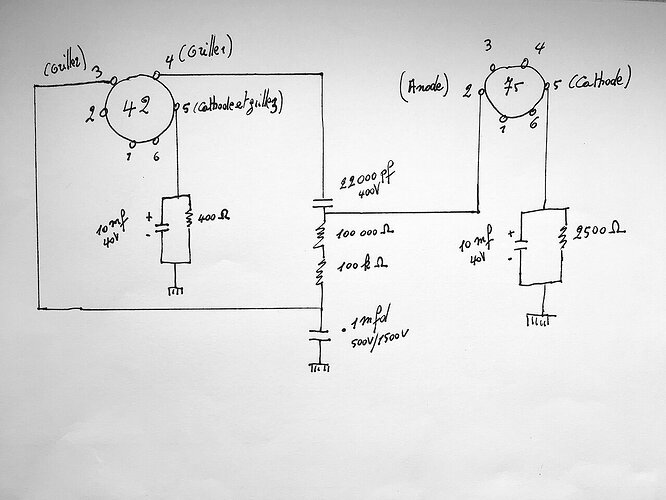 (Grille2)
3
4 (Grille1)
2
42
5 (Cathode et grille3)
1
6
10 mf
40V
+
-
400 Ω
22000 pf
400V
100 000 Ω
100 k Ω
.1 mfd
500V/1500V
(Anode)
3
4
2
75
5 (Cathode)
1
6
10 mf
40V
+
-
2500 Ω